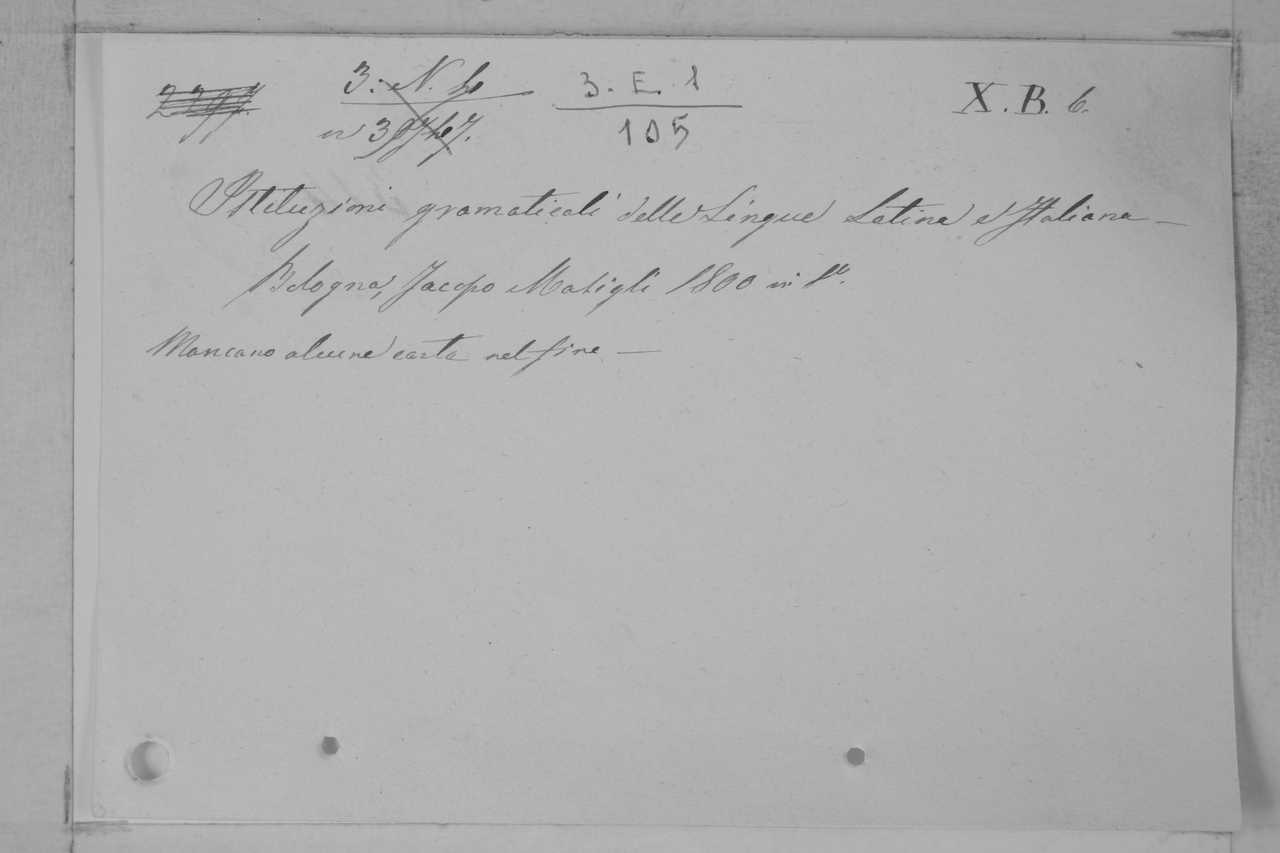 3. N. 4 3. E. 1 X. B. 6.
105
Istituzioni gramaticali delle Lingue Latina e Italiana —
Bologna, Jacopo Marsigli 1800 in 8º.
Mancano alcune carte nel fine —